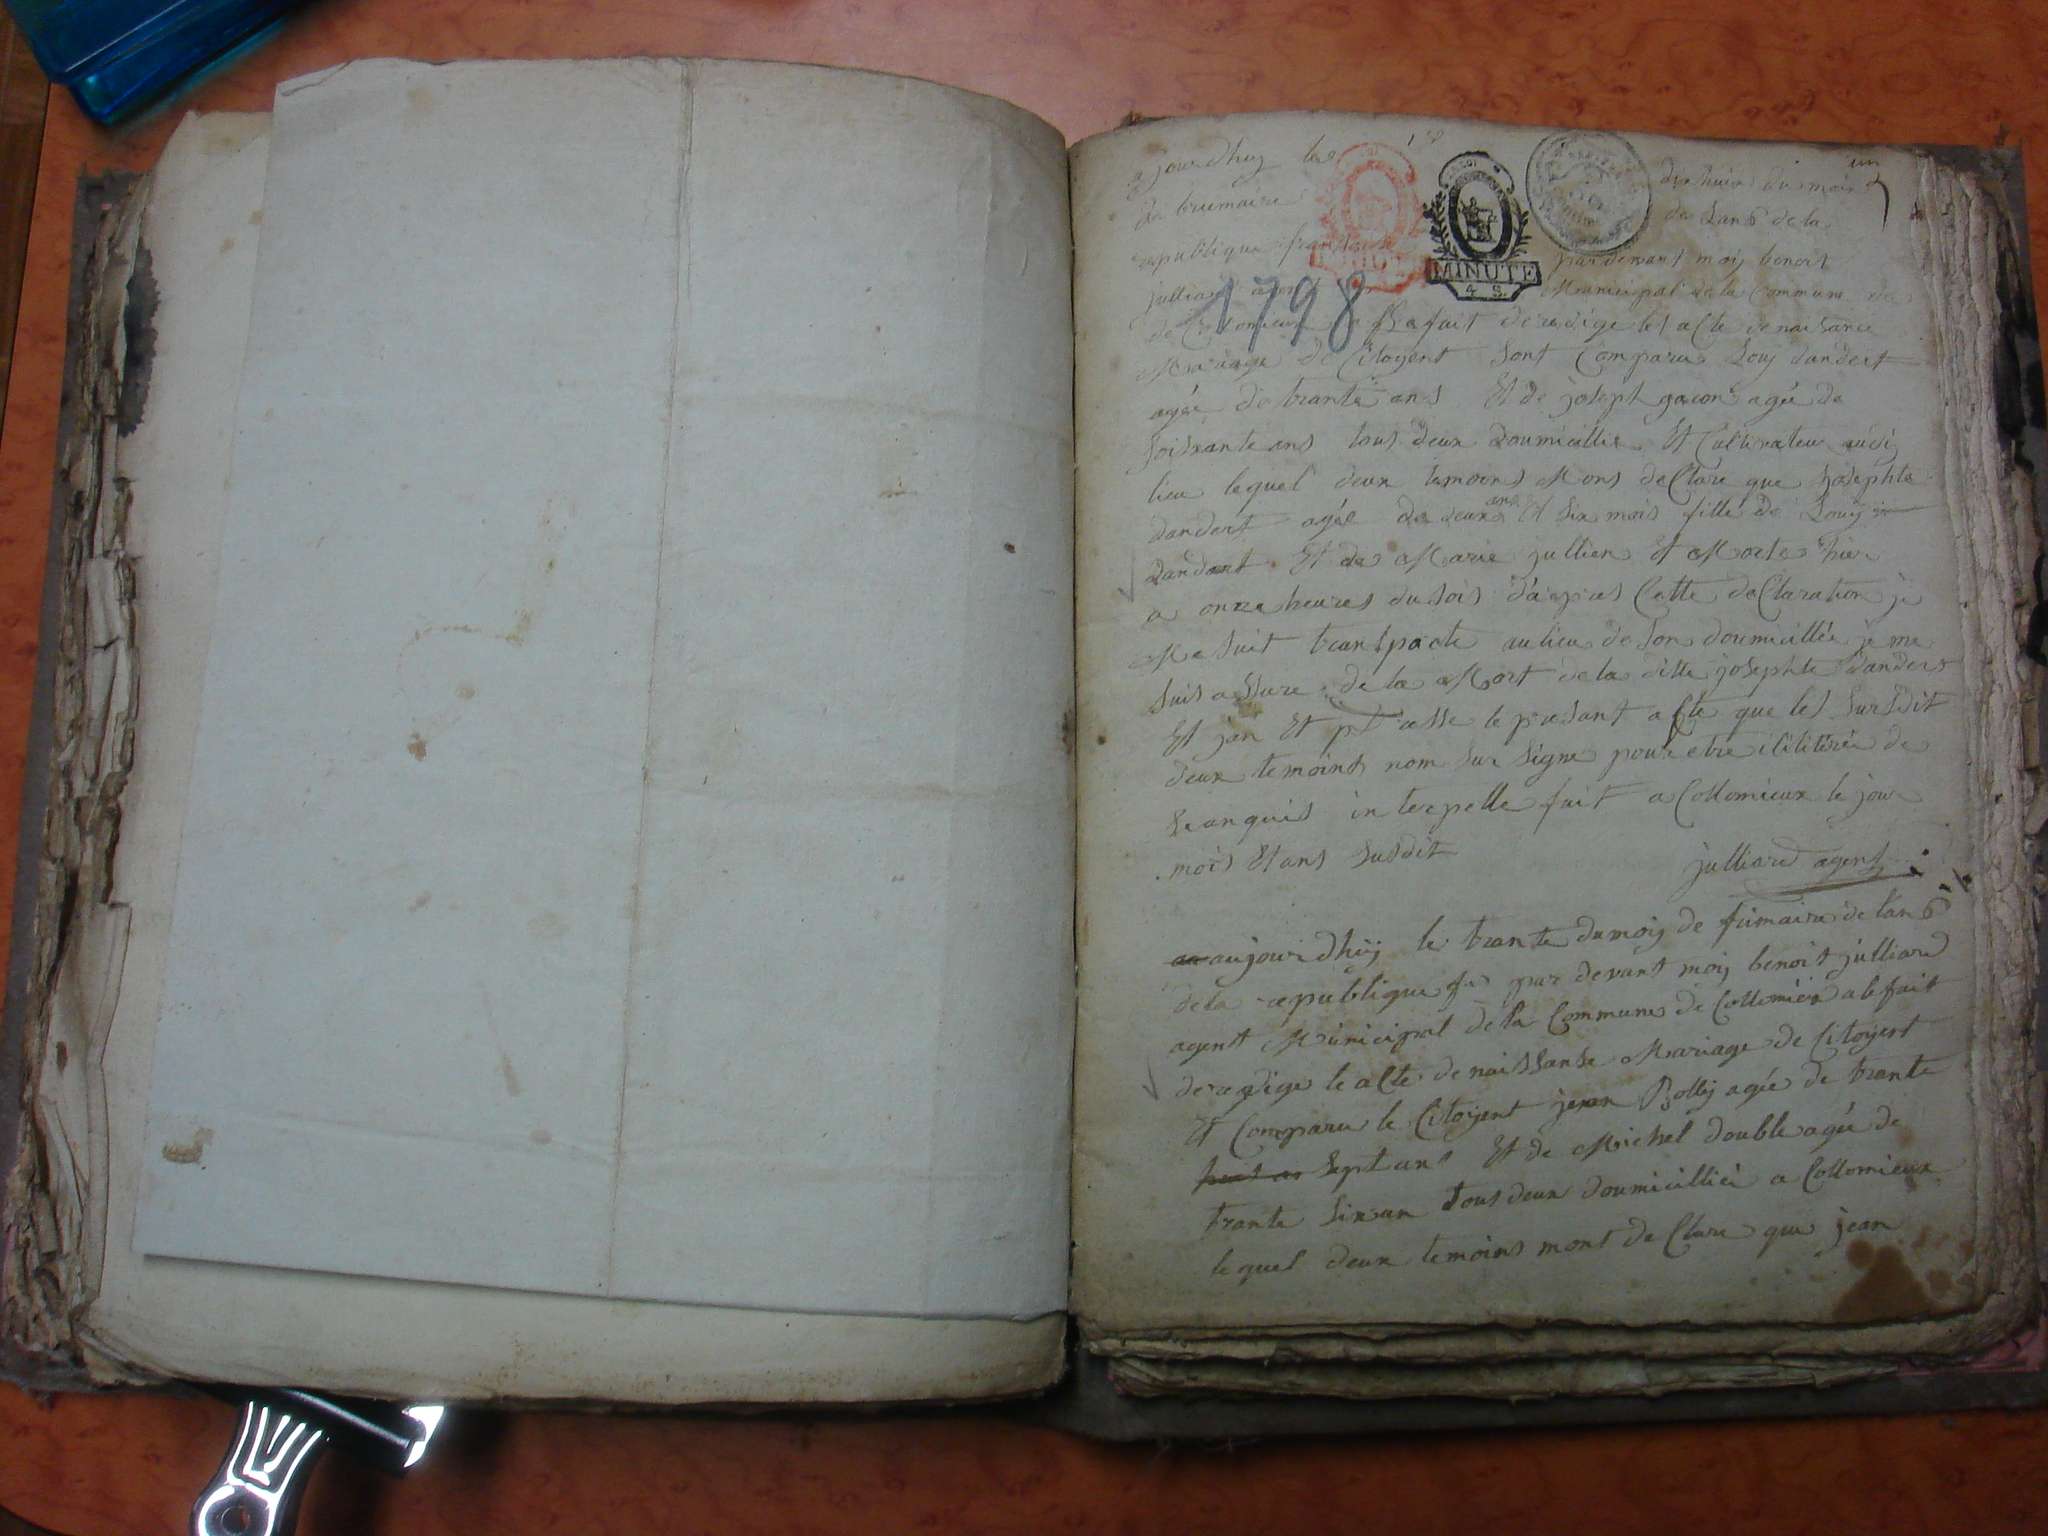 jourdhuy le dix huit du mois
de brumaire de Lan 6 de la
republique francaise par devant moy benoit
julliard agent Municipal de la Commune de
MINUTE
4 S.
1798
de fait de redige les acte de naisance
Mariage de Citoyent Sont Comparu Louy dandert
agée de trante ans Et de joseph gacon agée de
soisxante ans tous deux doumicillie Et Cultivateur
lieu lequel deux temoins Mons deClare que Josephte
dandert agée de deux ans Et Six mois fille de Louij
dandert Et de Marie jullien Et Morte hier
a onze heures du soir daprès Cette deClaration je
Me suit transporte au lieu de son doumicillée je me
suis assure de la Mort de la ditte josephte danders
Et jan Et dresse le presant acte que les Sursdit
deux temoins nom sur signe pour etre ilitérée de
se anquis interpelle fait a Collomieux le jour
mois Et ans Susdit
julliard agent
aujourdhuij le trante du moij de frimaire de lan 6
de la republique par devant moij benoit julliard
agent Municipal de la Commune de Collomieu fait
deredige le acte de naissanse Mariage de Citoyent
Et Comparu le Citoyent jean Rolly agée de trante
sept ans Et de Michel double agée de
trante Six an tous deux doumicillié a Collomieux
lequel deux temoins mont deClare que jean